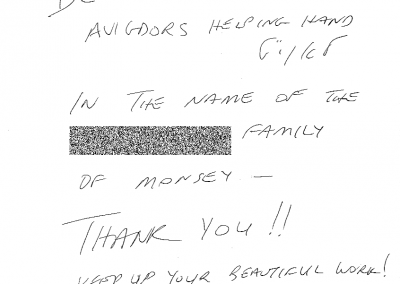 AVIGDORS HELPING HAND
IN THE NAME OF THE
FAMILY
OF MONSEY —
THANK YOU !!
KEEP UP YOUR BEAUTIFUL WORK!